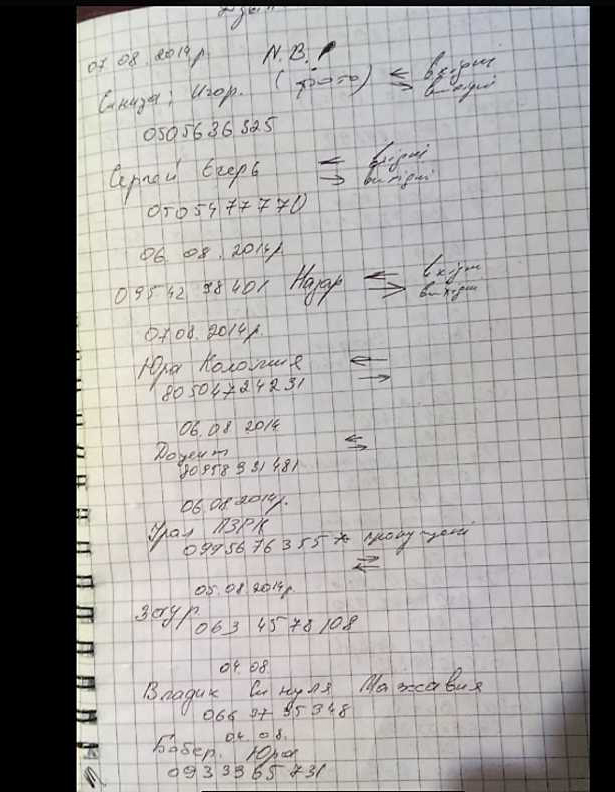 07.08.2014р. N.B.!
Синица: Игор. (фото) ← вхідні
→ вихідні
0505636325
Сергей Егерь ← вхідні
→ вихідні
0505477770
06.08.2014р.
0954298401 Назар ← вхідні
→ вихідні
07.08.2014р
Юра Коломия ←
80504724231 →
06.08 2014
Доцент ←
→
80958331481
06.08.2014р.
Урал ПЗРК
0995676355 * пропущені
→
←
05.08.2014р
Заур
063 4578108
04.08.
Владик Синуля
066 9795348
04.08.
Бобер. Юра
0933965731